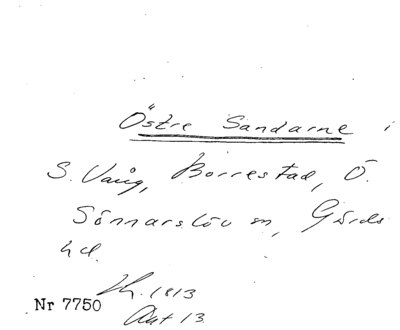 Östre Sandarne i
S. Vång, Borrestad, Ö.
Sönnarslöv sn, Gärds
hd.
Th. 1813
Akt 13.
Nr 7750